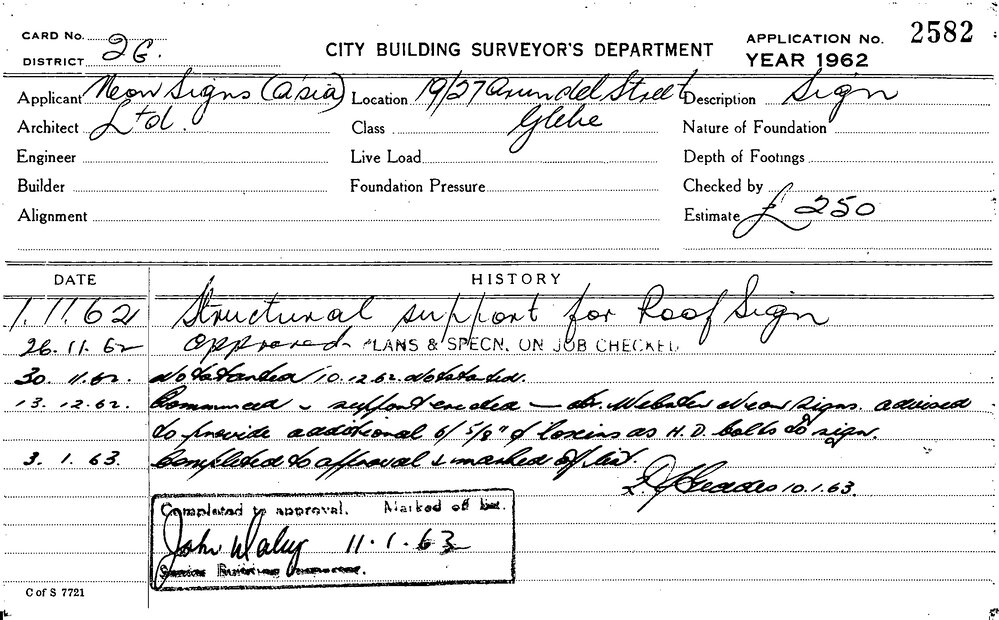 CARD No.
DISTRICT 2G.
CITY BUILDING SURVEYOR'S DEPARTMENT
APPLICATION No. 2582
YEAR 1962
Applicant Neon Signs (Asia) Location 19/27 Arundel Street Description Sign
Architect Ltd. Class Glebe Nature of Foundation
Engineer Live Load Depth of Footings
Builder Foundation Pressure Checked by
Alignment Estimate £ 250
DATE HISTORY
1.11.62 Structural support for Roof Sign
26.11.62 approved PLANS & SPECN. ON JOB CHECKED
30.11.62. Not started 10.12.62. Not started.
13.12.62. Commenced support erected — Mr. Webster Neon Signs. advised
to provide additional 6/ 5/8" as H.D. bolts to sign.
3.1.63. Completed to approval & marked off list.
10.1.63.
Completed to approval. Marked off list.
John 11.1.63
Senior Building
C of S 7721